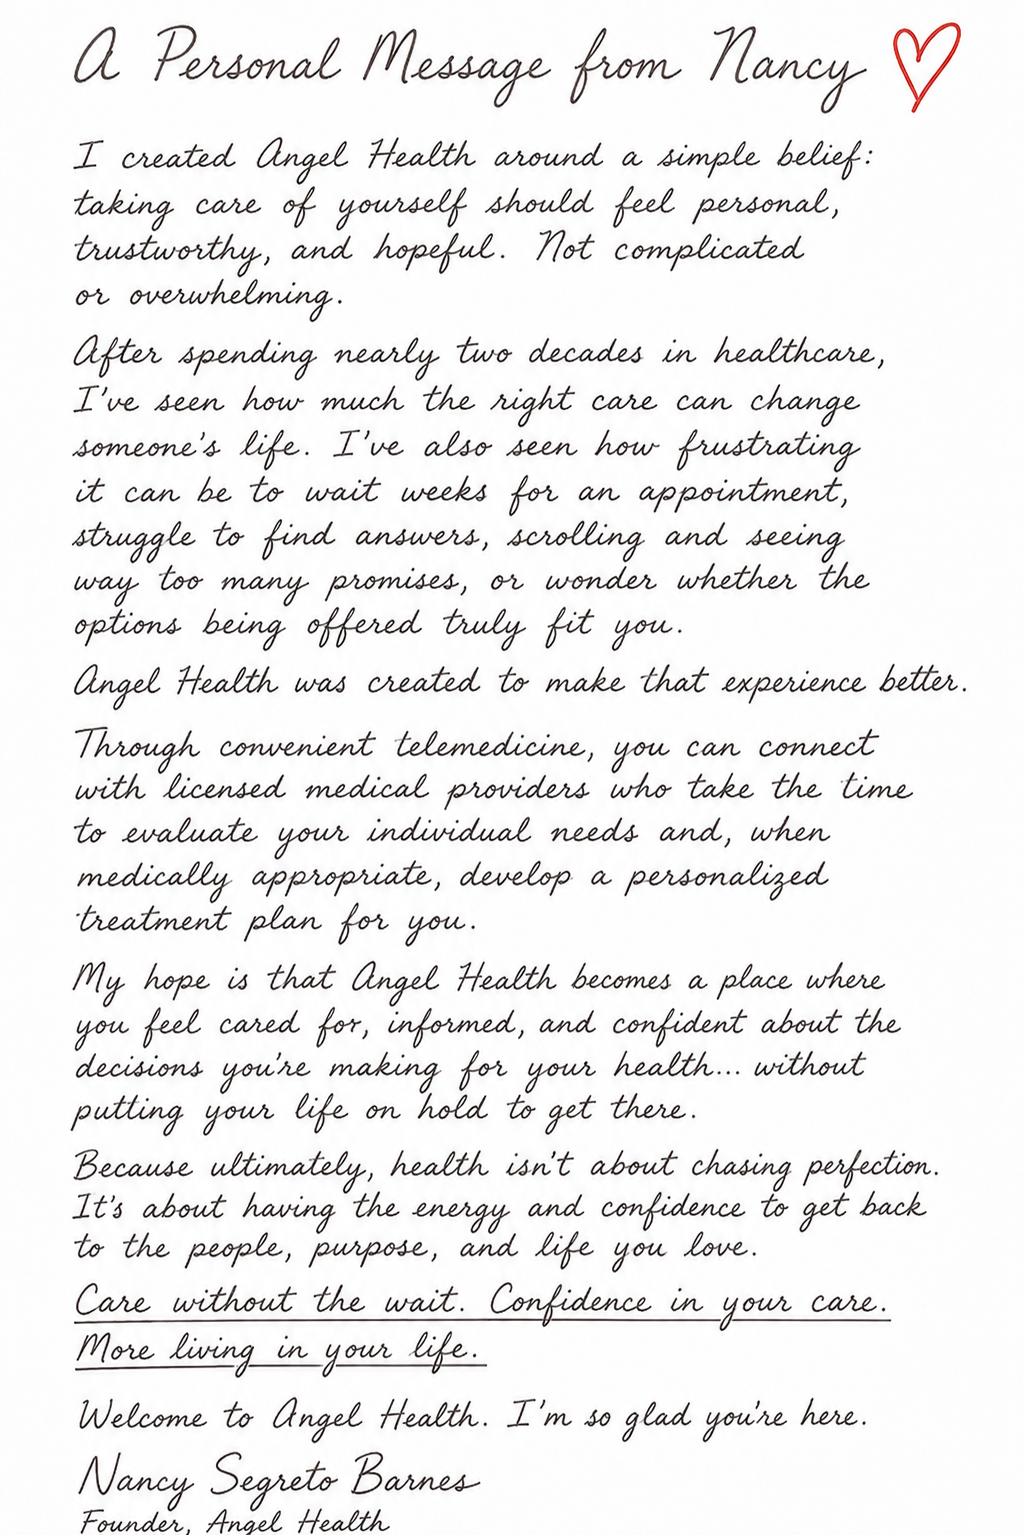 A Personal Message from Nancy
I created Angel Health around a simple belief:
taking care of yourself should feel personal,
trustworthy, and hopeful. Not complicated
or overwhelming.
After spending nearly two decades in healthcare,
I've seen how much the right care can change
someone's life. I've also seen how frustrating
it can be to wait weeks for an appointment,
struggle to find answers, scrolling and seeing
way too many promises, or wonder whether the
options being offered truly fit you.
Angel Health was created to make that experience better.
Through convenient telemedicine, you can connect
with licensed medical providers who take the time
to evaluate your individual needs and, when
medically appropriate, develop a personalized
treatment plan for you.
My hope is that Angel Health becomes a place where
you feel cared for, informed, and confident about the
decisions you're making for your health... without
putting your life on hold to get there.
Because ultimately, health isn't about chasing perfection.
It's about having the energy and confidence to get back
to the people, purpose, and life you love.
Care without the wait. Confidence in your care.
More living in your life.
Welcome to Angel Health. I'm so glad you're here.
Nancy Segreto Barnes
Founder, Angel Health